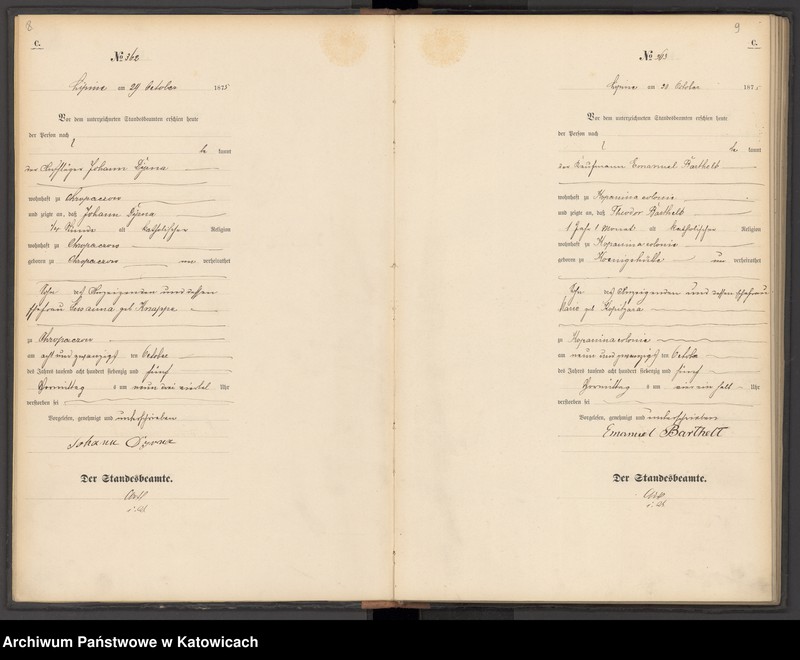 8
C.
№ 362
Lipine am 29 October 1875
Vor dem unterzeichneten Standesbeamten erschien heute
der Person nach
kannt
der Johann Dyrna
wohnhaft zu Chropaczow
und zeigte an, daß Johann Dyrna
1/4 Stunde alt katholischer Religion
wohnhaft zu Chropaczow
geboren zu Chropaczow un verheirathet
Sohn des Anzeigenden und dessen
Ehefrau Susanna geb Knappe
zu Chropaczow
am acht und zwanzigsten October
des Jahres tausend acht hundert siebenzig und fünf
Vormittag s um neun drei viertel Uhr
verstorben sei
Vorgelesen, genehmigt und unterschrieben
Johann Dyrna
Der Standesbeamte.
9
C.
№ 363
Lipine am October 187
Vor dem unterzeichneten Standesbeamten erschien heute
der Person nach
be kannt
der Kaufmann Emanuel Barthelt
wohnhaft zu Kopaninacolonie
und zeigte an, daß Theodor Barthelt
1 Jahr 1 Monat alt katholischer Religion
wohnhaft zu Kopaninacolonie
geboren zu Koenigshütte un verheirathet
Sohn des Anzeigenden und dessen Ehefrau
Marie geb
zu Kopaninacolonie
am neun und zwanzigsten October
des Jahres tausend acht hundert siebenzig und fünf
Vormittag s um ein ein halb Uhr
verstorben sei
Vorgelesen, genehmigt und unterschrieben
Emanuel Barthelt
Der Standesbeamte.
Archiwum Państwowe w Katowicach